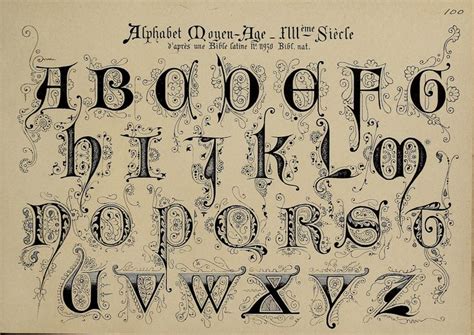 100
Alphabet Moyen-Age _ XIIIème Siècle
d'après une Bible latine No 11930 Bibl. nat.
A B C D E F G
H I J K L M
N O P Q R S T
U V W X Y Z